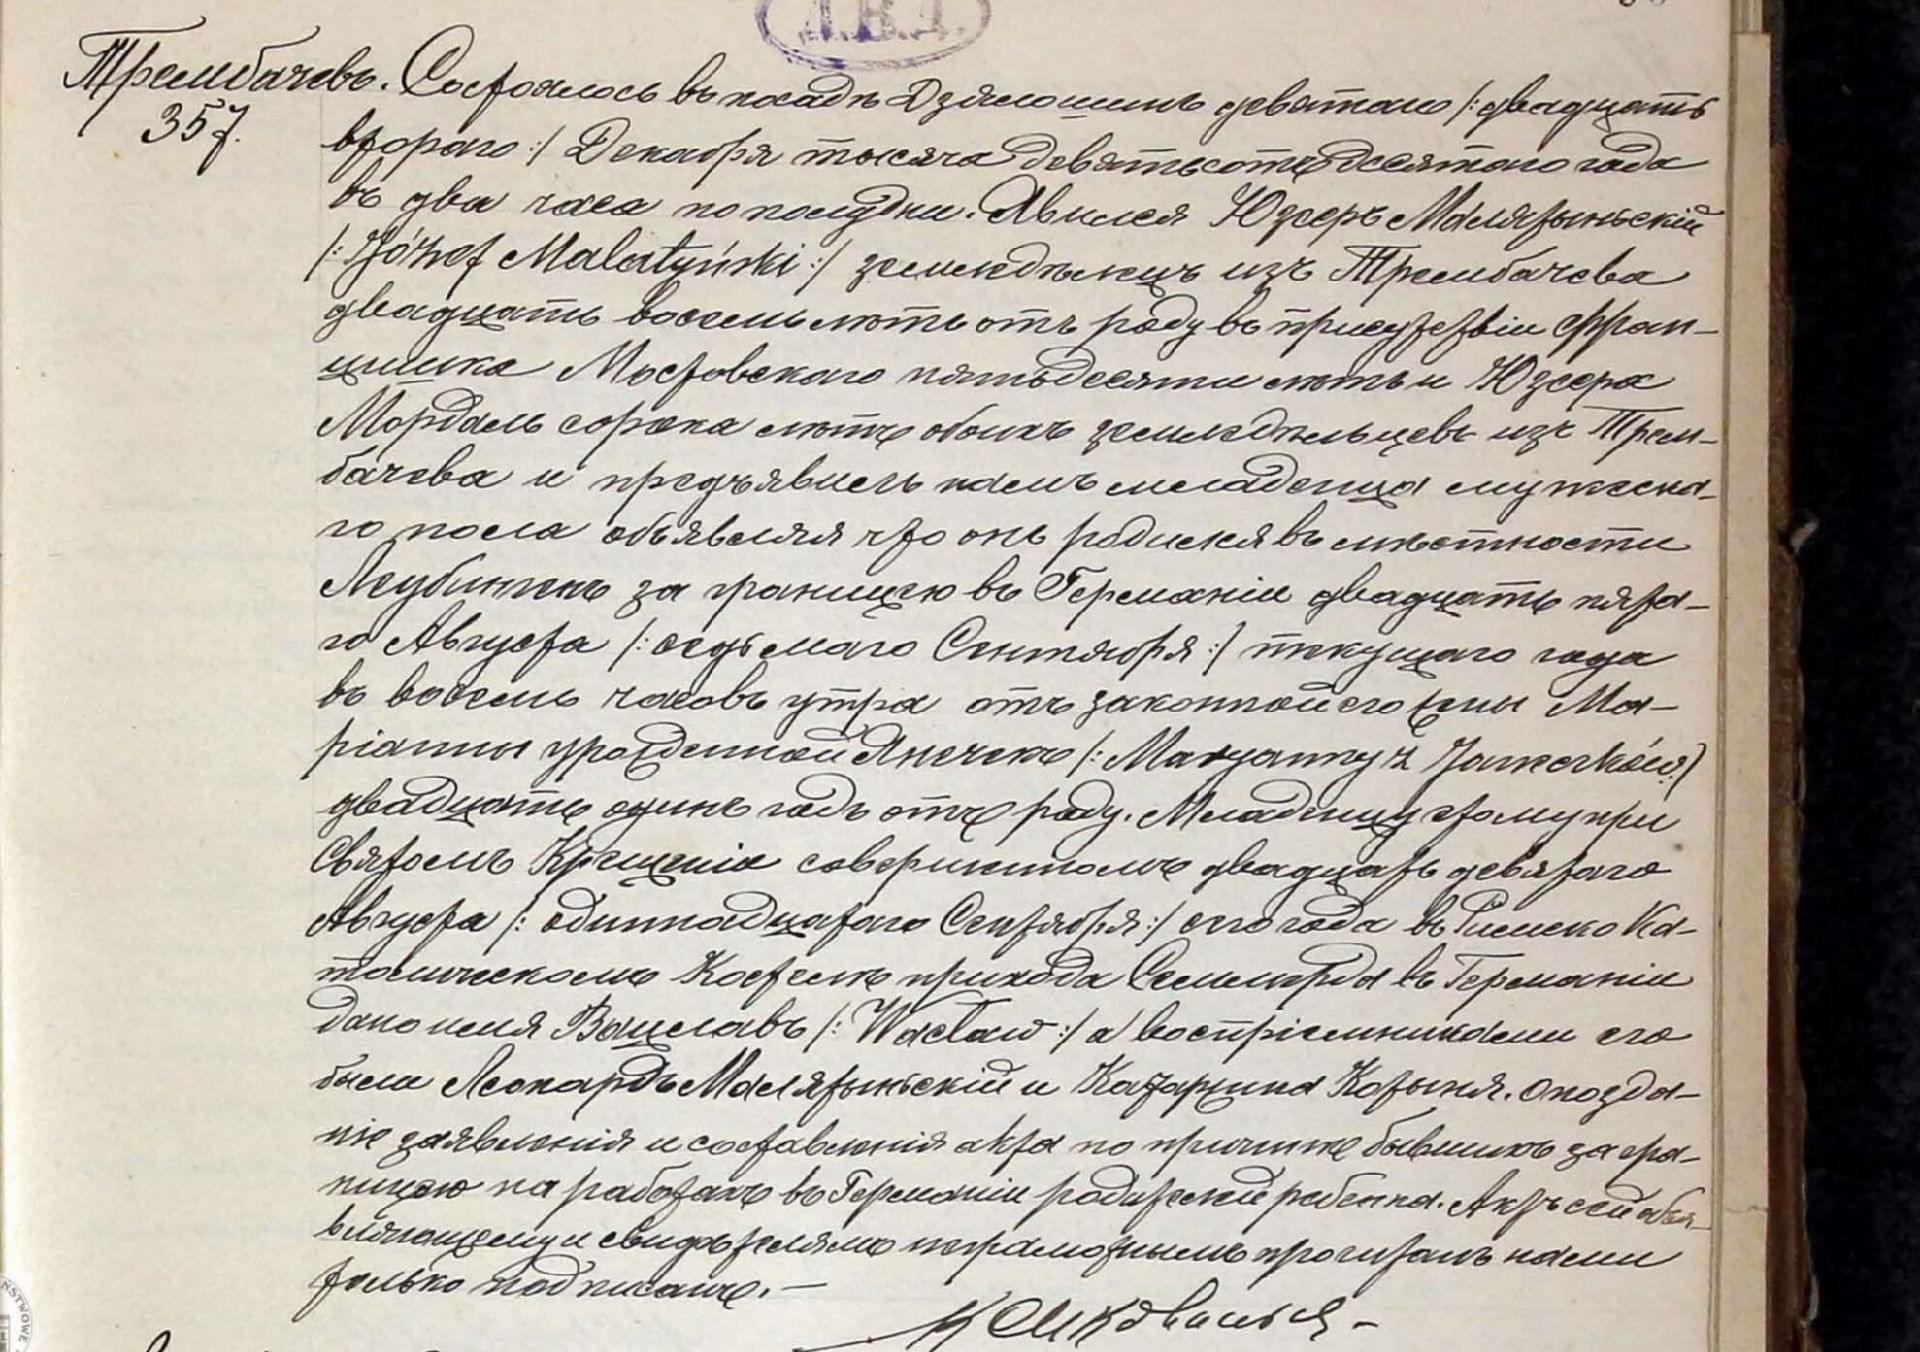 Д.В.Д.
Трембачевъ. Состоялось въ посадѣ Дзялошинѣ девятаго /: двадцать
357.
втораго :/ Декабря тысяча девятьсотъ десятого года
въ два часа по полудни. Явился Юзефъ Малятыньскій
/: Józef Malatyński :/ земледѣлецъ изъ Трембачева
двадцать восемь лѣтъ отъ роду въ присутствіи Фран-
цишка Мостовскаго пятьдесяти лѣтъ и Юзефа
Мордаль сорока лѣтъ обоихъ земледѣльцевъ изъ Трем-
бачева и предъявилъ намъ младенца мужеска-
го пола объявляя что онъ родился въ мѣстности
за границею въ Германіи двадцать пята-
го Августа /: седьмаго Сентября :/ текущаго года
въ восемь часовъ утра отъ законной его жены Ма-
ріанны урожденной Янечекъ /: Maryanny z Janeczków :/
двадцать одинъ годъ отъ роду. Младенцу этому при
Святомъ Крещеніи совершенномъ двадцать девятаго
Августа /: одиннадцатаго Сентября :/ сего года въ Римско Ка-
толическомъ Костелѣ прихода въ Германіи
дано имя Вацлавъ /: Wacław :/ а воспріемниками его
были Леонардъ Малятыньскій и Катаржина Котыня. Опозда-
ніе заявленія и составленія акта по причинѣ бывшихъ за гра-
ницею на работахъ въ Германіи родителей ребенка. Актъ сей объя-
вляющему и свидѣтелямъ неграмотнымъ прочитанъ нами
только подписанъ. —